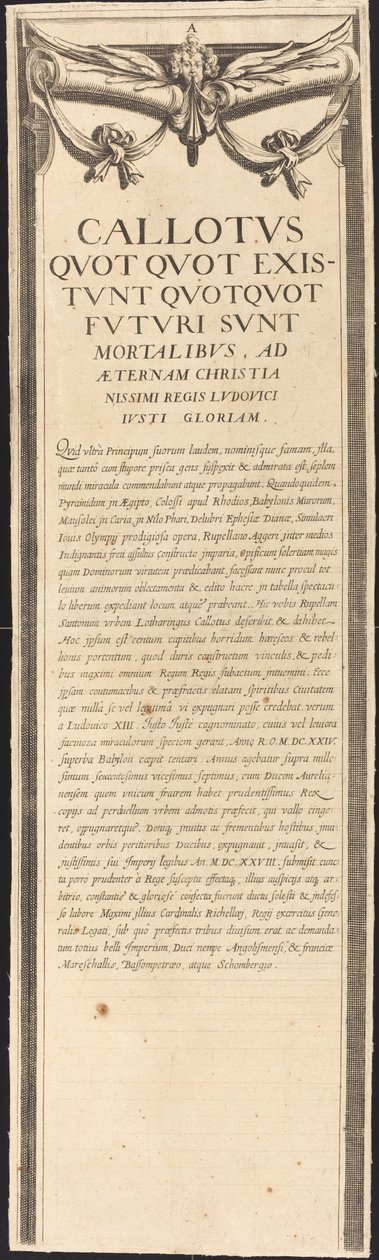 A
CALLOTVS
QVOT QVOT EXIS-
TVNT QVOTQVOT
FVTVRI SVNT
MORTALIBVS, AD
ÆTERNAM CHRISTIA
NISSIMI REGIS LVDOVICI
IVSTI GLORIAM.
Quid vltrà Principum suorum laudem, nominisque famam, illa,
quæ tantò cum stupore prisca gens suspexit & admirata est, septem
mundi miracula commendabunt atque propagabunt. Quandoquidem,
Pyramidum jn Ægipto, Colossi apud Rhodios, Babylonis Murorum,
Mausolei jn Caria, jn Nilo Phari, Delubri Ephesiæ Dianæ, Simulacri
Iouis Olympij prodigiosa opera, Rupellano Aggeri jnter medios
Indignantis freti assultus constructo imparia, opificum solertiam magis
quam Dominorum virtutem prædicabant, facessant nunc procul tot
leuium animorum oblectamenta & edito hacce jn tabella spectacu-
lo liberum expediant locum atque præbeant. Hic vobis Rupellam
Santonum vrbem Lotharingus Callotus describit, & exhibet
Hoc jpsum est centum capitibus horridum hæreseos & rebel-
lionis portentum, quod duris constructum vinculis, & pedi-
bus maximi omnium Regum Regis subactum jntuemini. Ecce
jpsam contumacibus & præfractis elatam spiritibus Ciuitatem
quæ nulla se vel legitima vi expugnari posse credebat. verum
a Ludouico XIII. Justo Justè cognominato, cuius vel leuiora
facinora miraculorum speciem gerunt, Anno R.O.M.DC.XXIV.
superba Babylon cæpit tentari, Annus agebatur supra mille-
simum sexcentesimus vicesimus septimus, cum Ducem Aurelia-
nensem quem vnicum fratrem habet prudentissimus Rex
copijs ad perduellium vrbem admotis præfecit, qui vallo cinge-
ret, opugnaretque. Deniq, jnuitis ac frementibus hostibus, jnui-
dentibus orbis peritioribus Ducibus, expugnauit, jnuasit, &
justissimis sui Jmperij legibus An. M.DC.XXVIII. submisit. cunc-
ta porro prudenter à Rege suscepta effectaq, illius auspicijs atq, ar-
bitrio, constanter & gloriosè confecta fuerunt ductu solesti & jndefes-
so labore Maximi jllius Cardinalis Richellæj, Regij exercitus Gene-
ralis Legati, sub quo præfectis tribus diuisum erat ac demanda-
tum totius belli Jmperium, Duci nempe Angolismensi, & franciæ
Mareschallis, Bassompetræo, atque Schombergio.